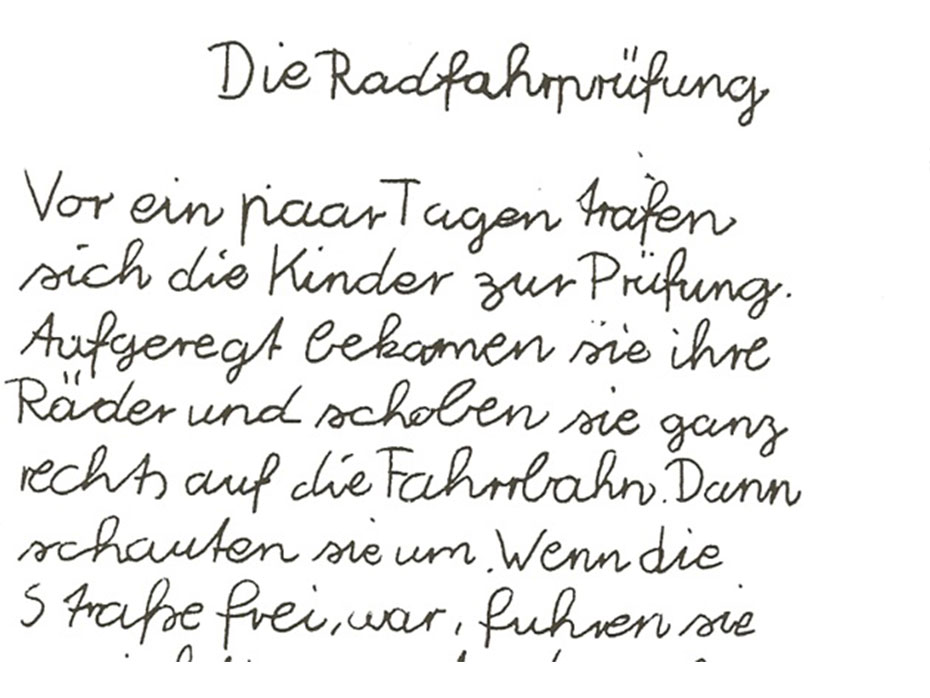 Die Radfahrprüfung
Vor ein paar Tagen trafen
sich die Kinder zur Prüfung.
Aufgeregt bekamen sie ihre
Räder und schoben sie ganz
rechts auf die Fahrbahn. Dann
schauten sie um. Wenn die
Straße frei, war, fuhren sie